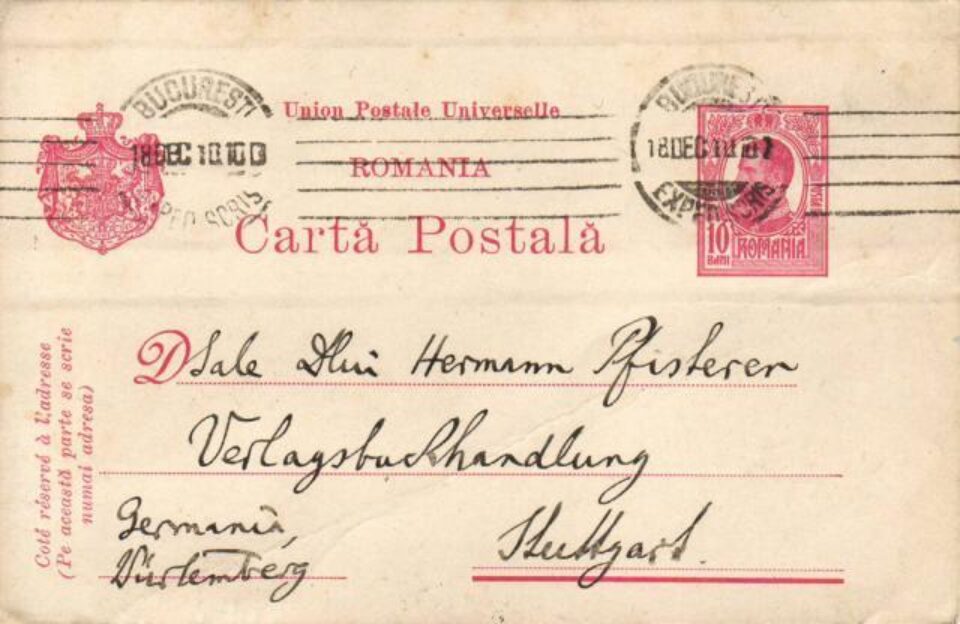 BUCUREST
18 DEC 10.10
Union Postale Universelle
ROMANIA
Cartă Postală
18 DEC 10
EXPED
10
BANI
ROMANIA
Coté réservé à l'adresse
(Pe această parte se scrie
numai adresa)
DSale Dlui Hermann Pfisterer
Verlagsbuchhandlung
Germania,
Würtemberg
Stuttgart.